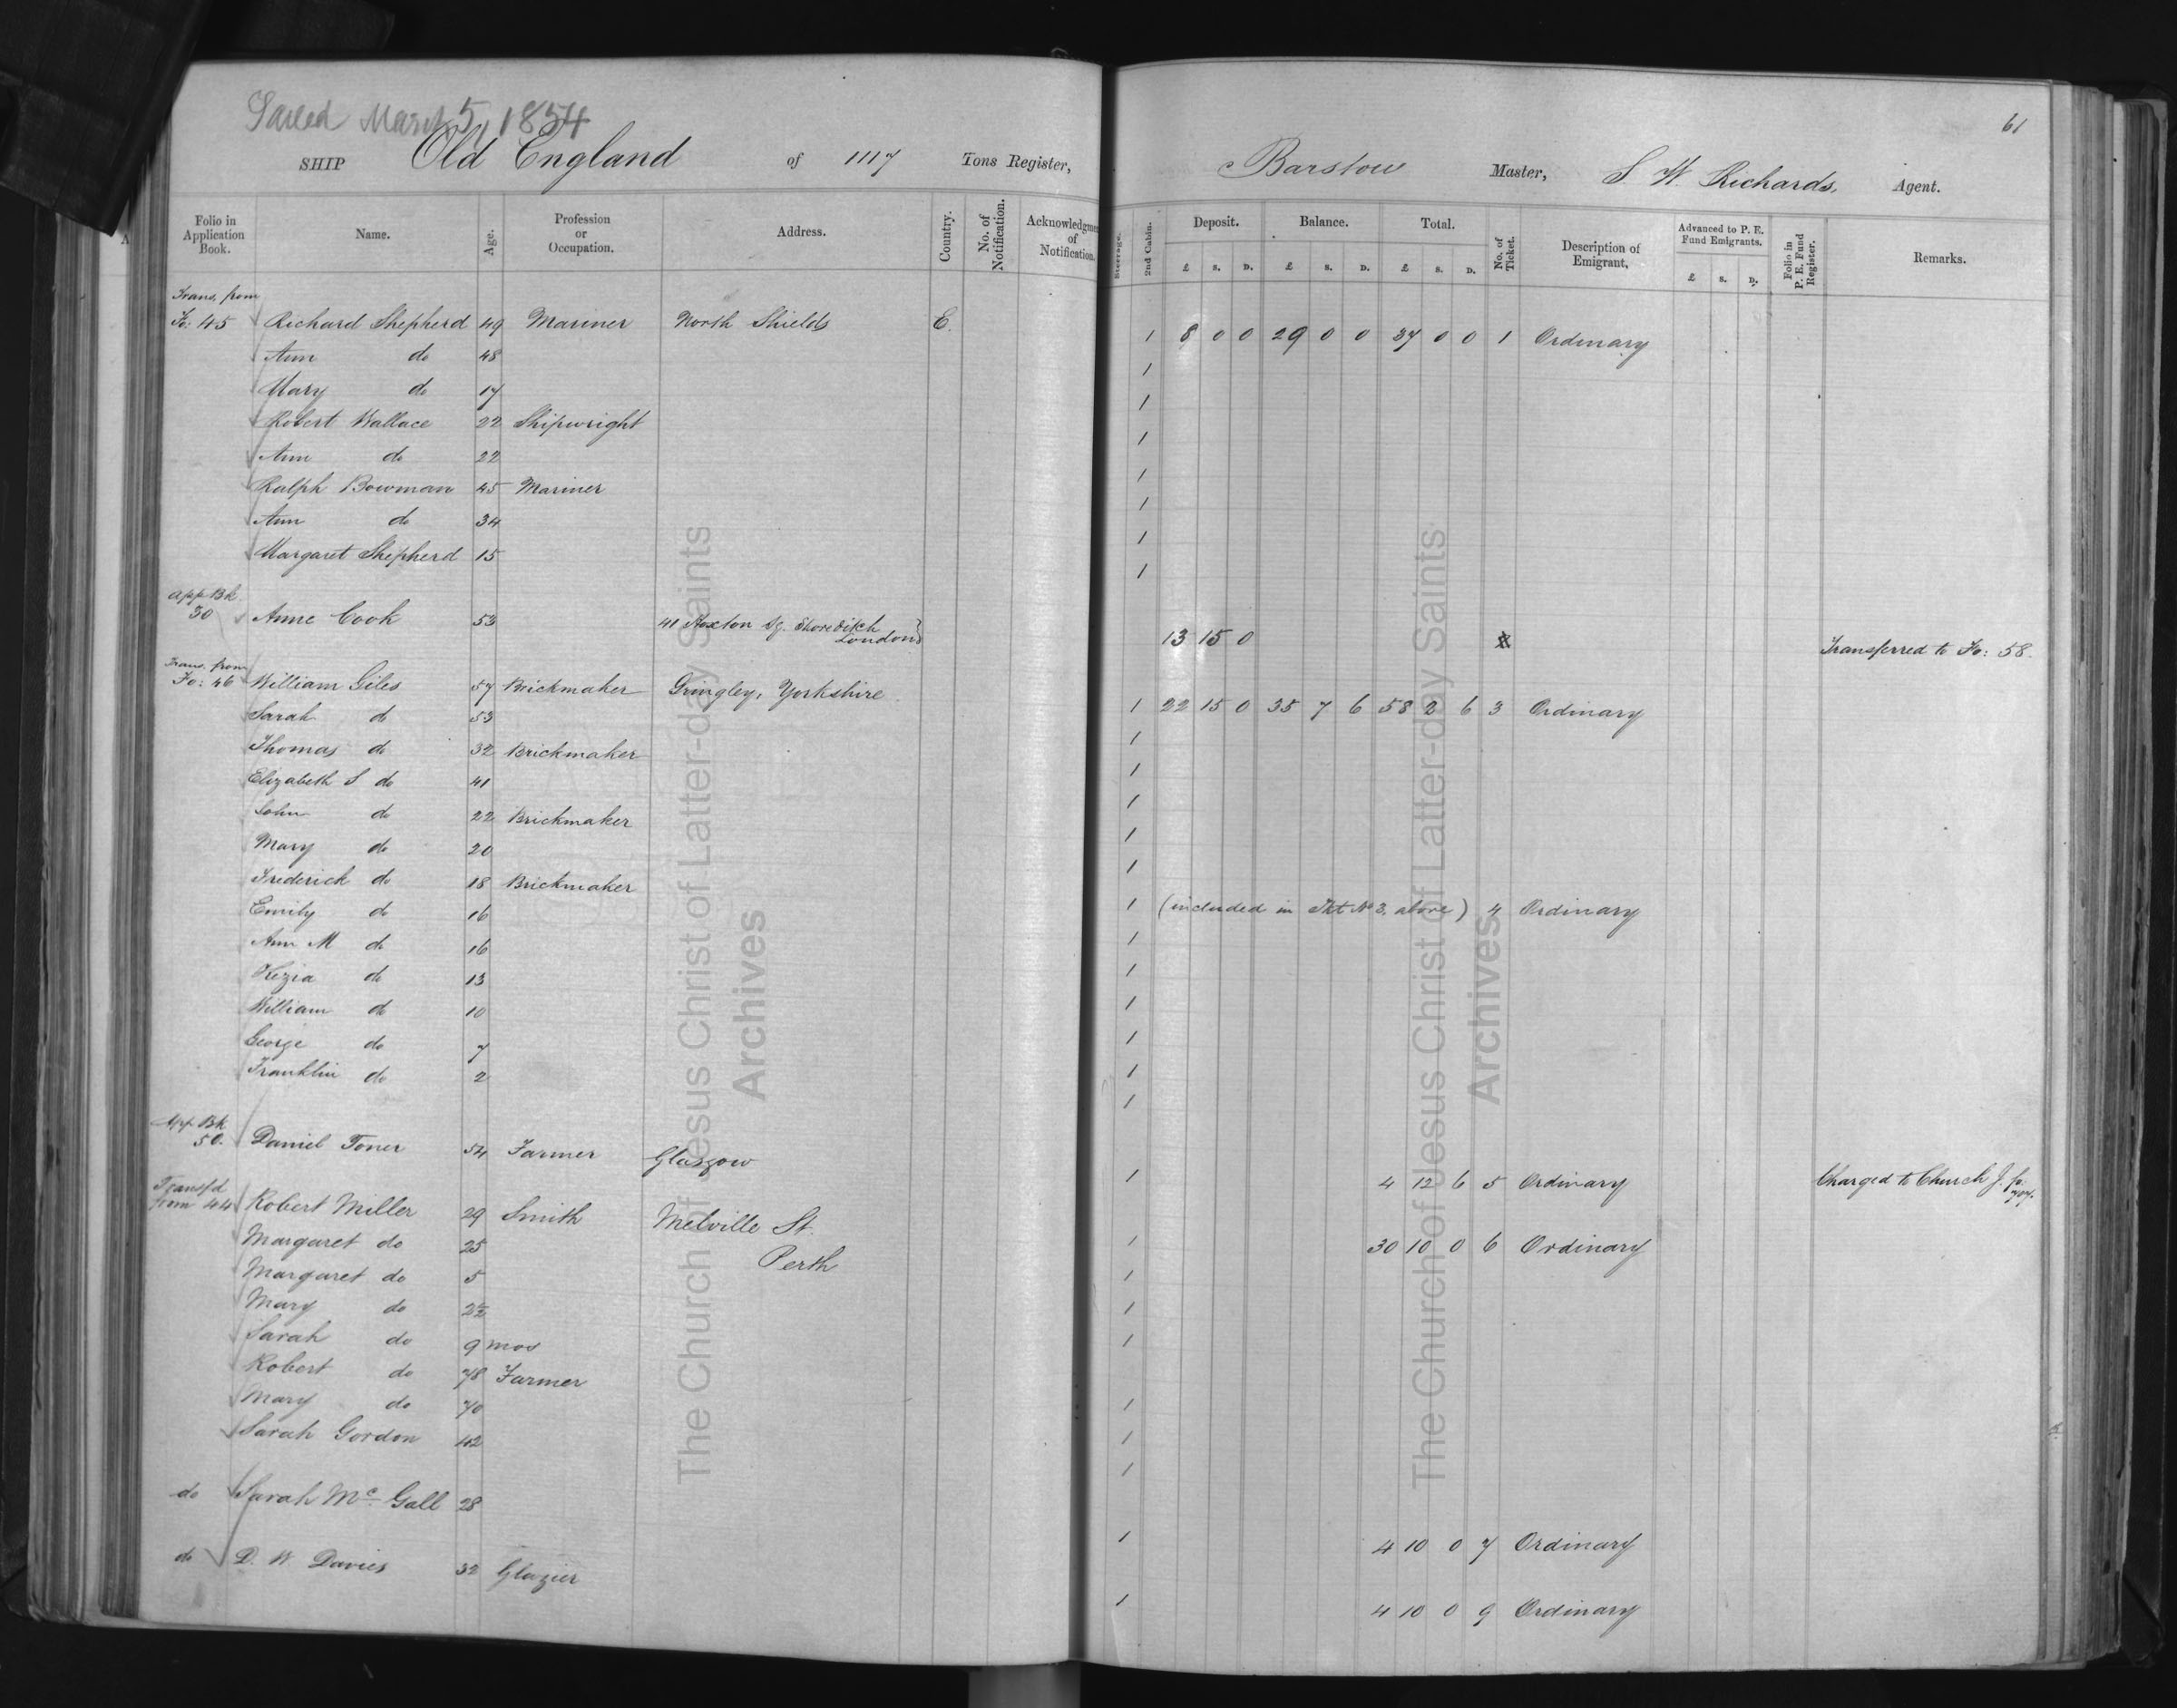 Sailed March 5, 1854
61
SHIP Old England of 1117 Tons Register, Barstow Master, S. W. Richards, Agent.
Folio in Application Book. Name. Age. Profession or Occupation. Address. Country. No. of Notification. Acknowledgment of Notification. Steerage. 2nd Cabin. Deposit. Balance. Total. No. of Ticket. Description of Emigrant. Advanced to P. E. Fund Emigrants. Folio in P. E. Fund Register. Remarks.
£ s. D. £ s. D. £ s. D. £ s. D.
Trans. from
Fo: 45 Richard Shepherd 49 Mariner North Shields E. 1 8 0 0 29 0 0 37 0 0 1 Ordinary
Ann do 48 1
Mary do 17 1
Robert Wallace 22 Shipwright 1
Ann do 22 1
Ralph Bowman 45 Mariner 1
Ann do 34 1
Margaret Shepherd 15 1
App Bk
30 Anne Cook 53 41 Hoxton Sq. Shoreditch
London 13 15 0 Transferred to Fo: 58.
Trans. from
Fo: 46 William Giles 57 Brickmaker Gringley, Yorkshire 1 22 15 0 35 7 6 58 2 6 3 Ordinary
Sarah do 53 1
Thomas do 32 Brickmaker 1
Elizabeth S do 41 1
John do 22 Brickmaker 1
Mary do 20 1
Frederick do 18 Brickmaker 1 (included in Tkt No 3, above) 4 Ordinary
Emily do 16 1
Ann M do 16 1
Kezia do 13 1
William do 10 1
George do 7 1
Franklin do 2 1
App. Bk
50. Daniel Toner 54 Farmer Glasgow 1 4 12 6 5 Ordinary Charged to Church J. fo.
Transfd
from 44 Robert Miller 29 Smith Melville St. 1 30 10 0 6 Ordinary
Margaret do 25 Perth 1
Margaret do 5 1
Mary do 2½ 1
Sarah do 9 mos
Robert do 78 Farmer 1
Mary do 70 1
Sarah Gordon 42 1
do Sarah Mc Gall 28 1 4 10 0 7 Ordinary
do D. W Davies 32 Glazier 1 4 10 0 9 Ordinary
The Church of Jesus Christ of Latter-day Saints
Archives
The Church of Jesus Christ of Latter-day Saints
Archives